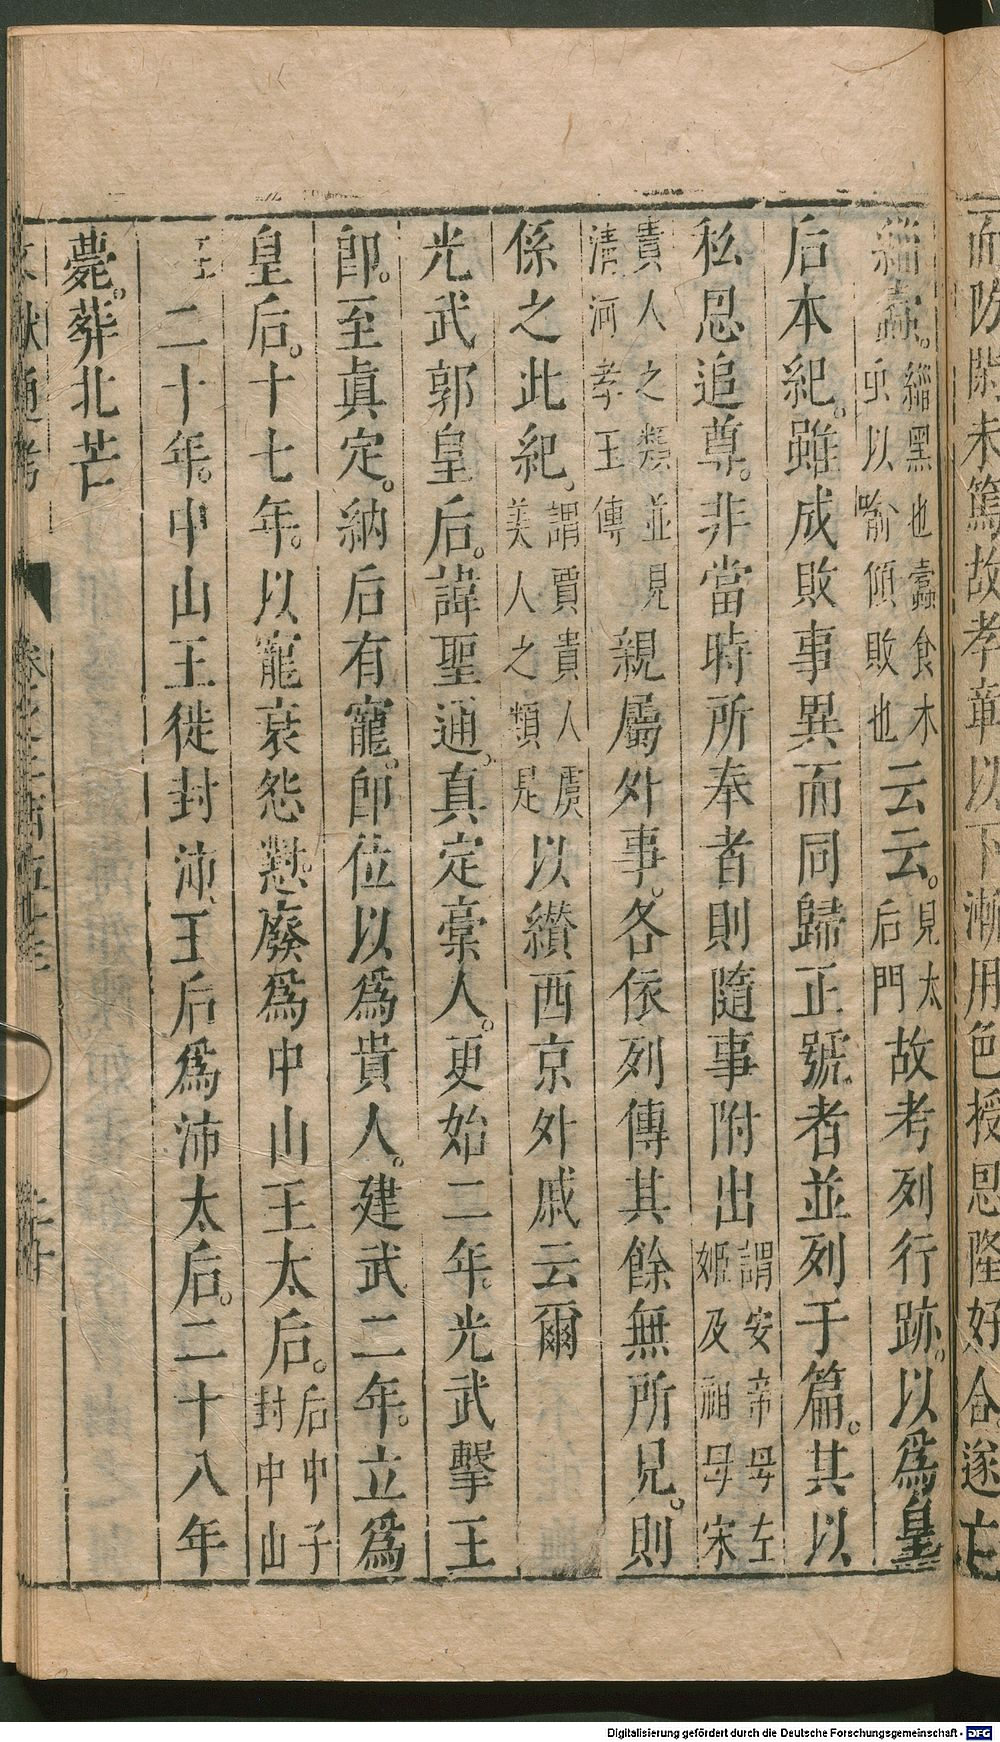 而防閑未篤故孝章以下漸用色授恩隆好合遂忘
緇蠹。緇黑也蠹食木虫以喻傾敗也云云。見太后門故考列行跡。以爲皇
后本紀。雖成敗事異而同歸正號者並列于篇。其以
私恩追尊。非當時所奉者則隨事附出謂安帝母左姬及祖母宋
貴人之類並見清河孝王傳親屬外事。各依列傳其餘無所見。則
係之此紀。謂賈貴人虞美人之類是以纘西京外戚云爾
光武郭皇后。諱聖通。真定槀人。更始二年。光武擊王
郎。至真定。納后有寵。即位以爲貴人。建武二年。立爲
皇后。十七年。以寵衰怨懟。廢爲中山王太后。后中子封中山
王二十年。中山王徙封沛王后爲沛太后。二十八年
薨。葬北芒
文獻通考
Digitalisierung gefördert durch die Deutsche Forschungsgemeinschaft - DFG